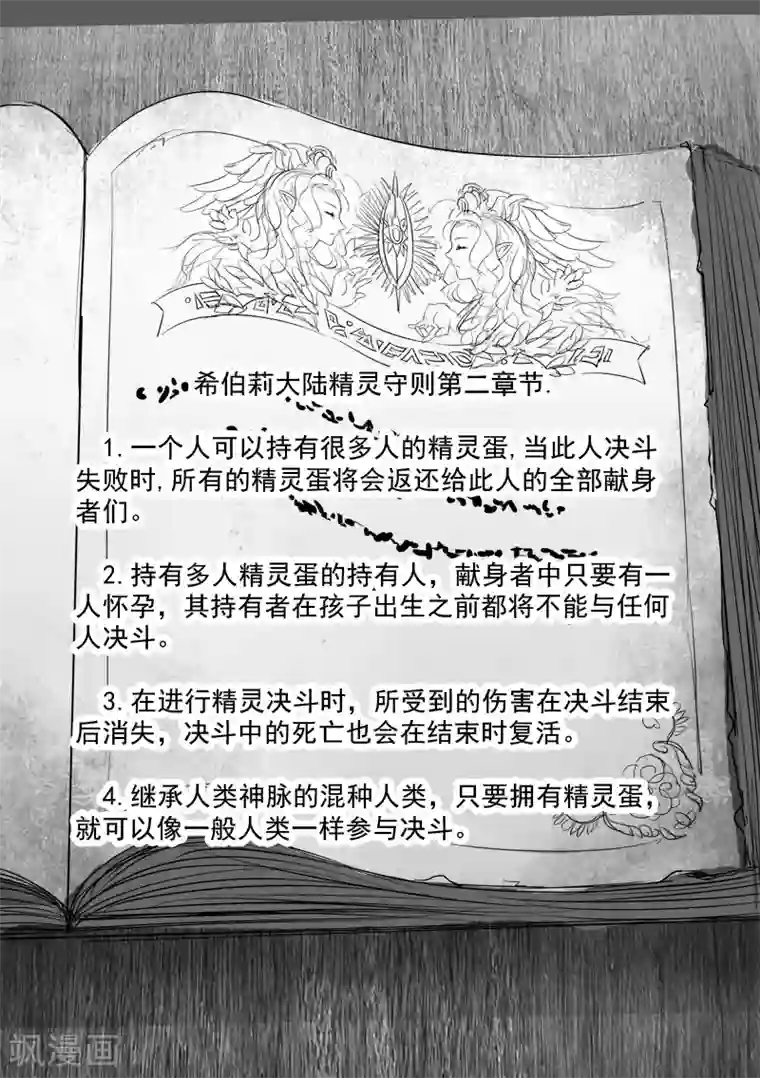 希伯莉大陆精灵守则第二章节.
1.一个人可以持有很多人的精灵蛋,当此人决斗
失败时,所有的精灵蛋将会返还给此人的全部献身
者们。
2.持有多人精灵蛋的持有人，献身者中只要有一
人怀孕，其持有者在孩子出生之前都将不能与任何
人决斗。
3.在进行精灵决斗时，所受到的伤害在决斗结束
后消失，决斗中的死亡也会在结束时复活。
4.继承人类神脉的混种人类，只要拥有精灵蛋，
就可以像一般人类一样参与决斗。
飒漫画